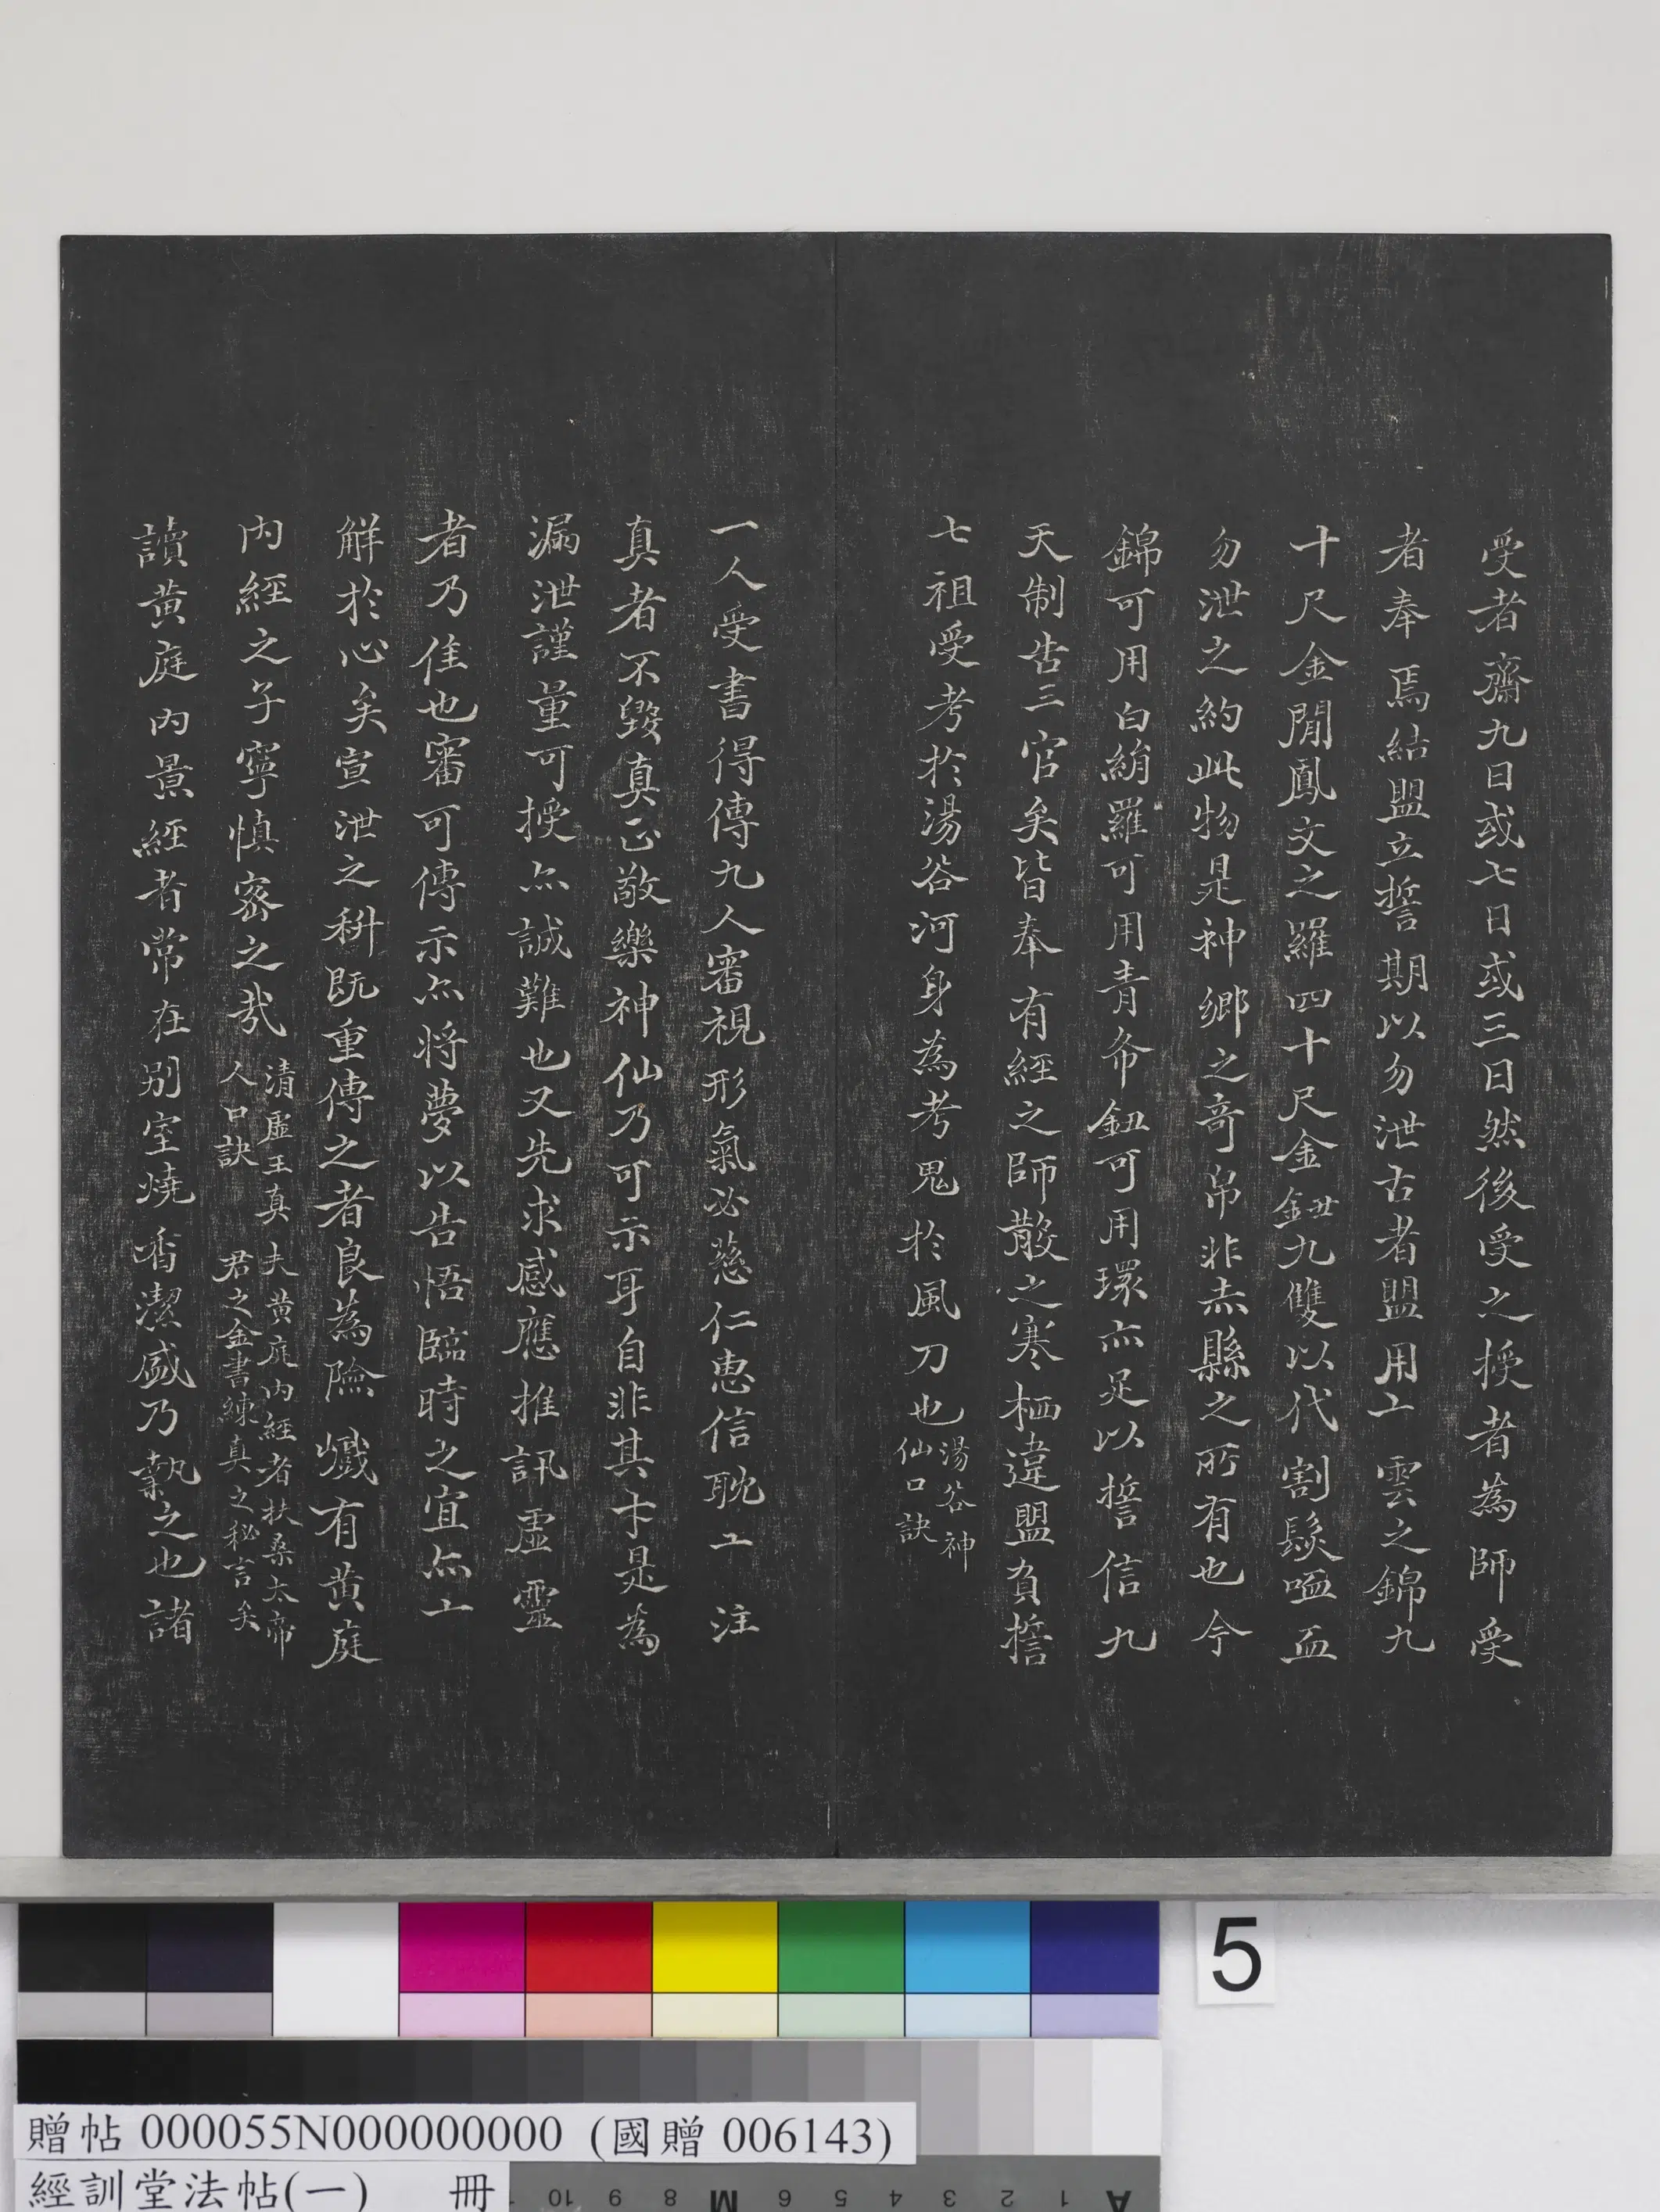 受者齋九日或七日或三日然後受之授者為師受
者奉焉結盟立誓期以勿泄古者盟用玄雲之錦九
十尺金閒鳳文之羅四十尺金鈕九雙以代割髮歃血
勿泄之約此物是神鄉之奇帛非赤縣之所有也今
錦可用白絹羅可用青布鈕可用環亦足以誓信九
天制告三官矣皆奉有經之師散之寒栖違盟負誓
七祖受考於湯谷河身為考鬼於風刀也
湯谷神
仙口訣
一人受書得傳九人審視形氣必慈仁惠信耽玄注
真者不毀真正敬樂神仙乃可示耳自非其才是為
漏泄謹量可授亦誠難也又先求感應推訊虛靈
者乃佳也審可傳示亦將夢以告悟臨時之宜亦玄
解於心矣宣泄之科既重傳之者良為險巇有黃庭
內經之子寧慎密之哉
清虛王真
人口訣
夫黃庭內經者扶桑太帝
君之金書練真之秘言矣
讀黃庭內景經者常在別室燒香潔盛乃執之也諸
5
贈帖 000055N000000000 (國贈 006143)
經訓堂法帖(一) 冊
A 1 2 3 4 5 6 M 8 9 10